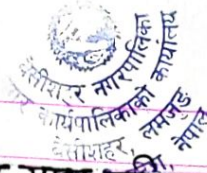 बेसीशहर नगरपालिका
नगर कार्यपालिकाको कार्यालय
बेसीशहर, लमजुङ, नेपाल